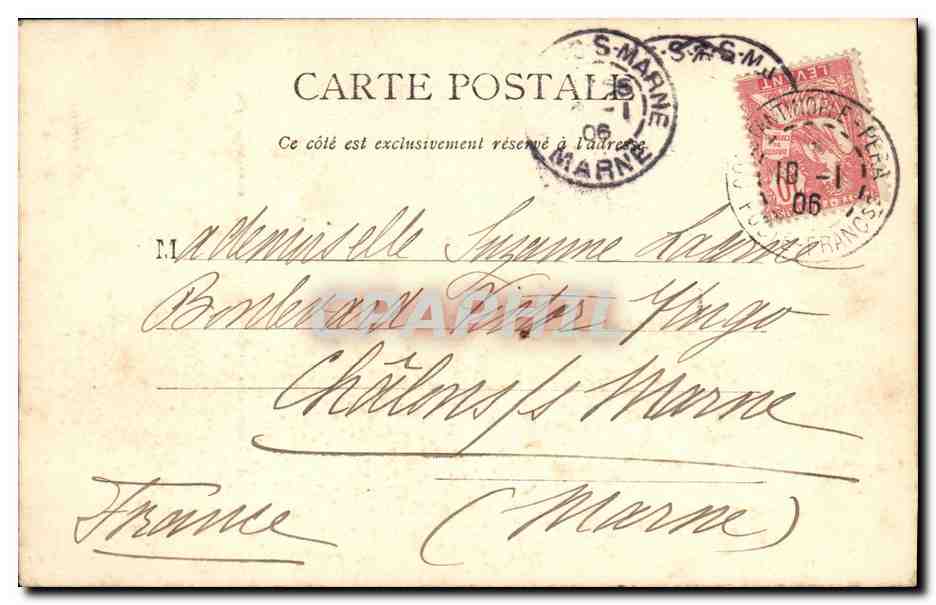 CARTE POSTALE
Ce côté est exclusivement réservé à l'adresse
S-MARNE
-1
06
MARNE
S-M
LEVANT
CONSTANTINOPLE-PERA
10 -1
06
POSTE FRANCSE
Mademoiselle Suzanne
Boulevard Victor Hugo
Châlons s/s Marne
France (Marne)
CPAPHIL